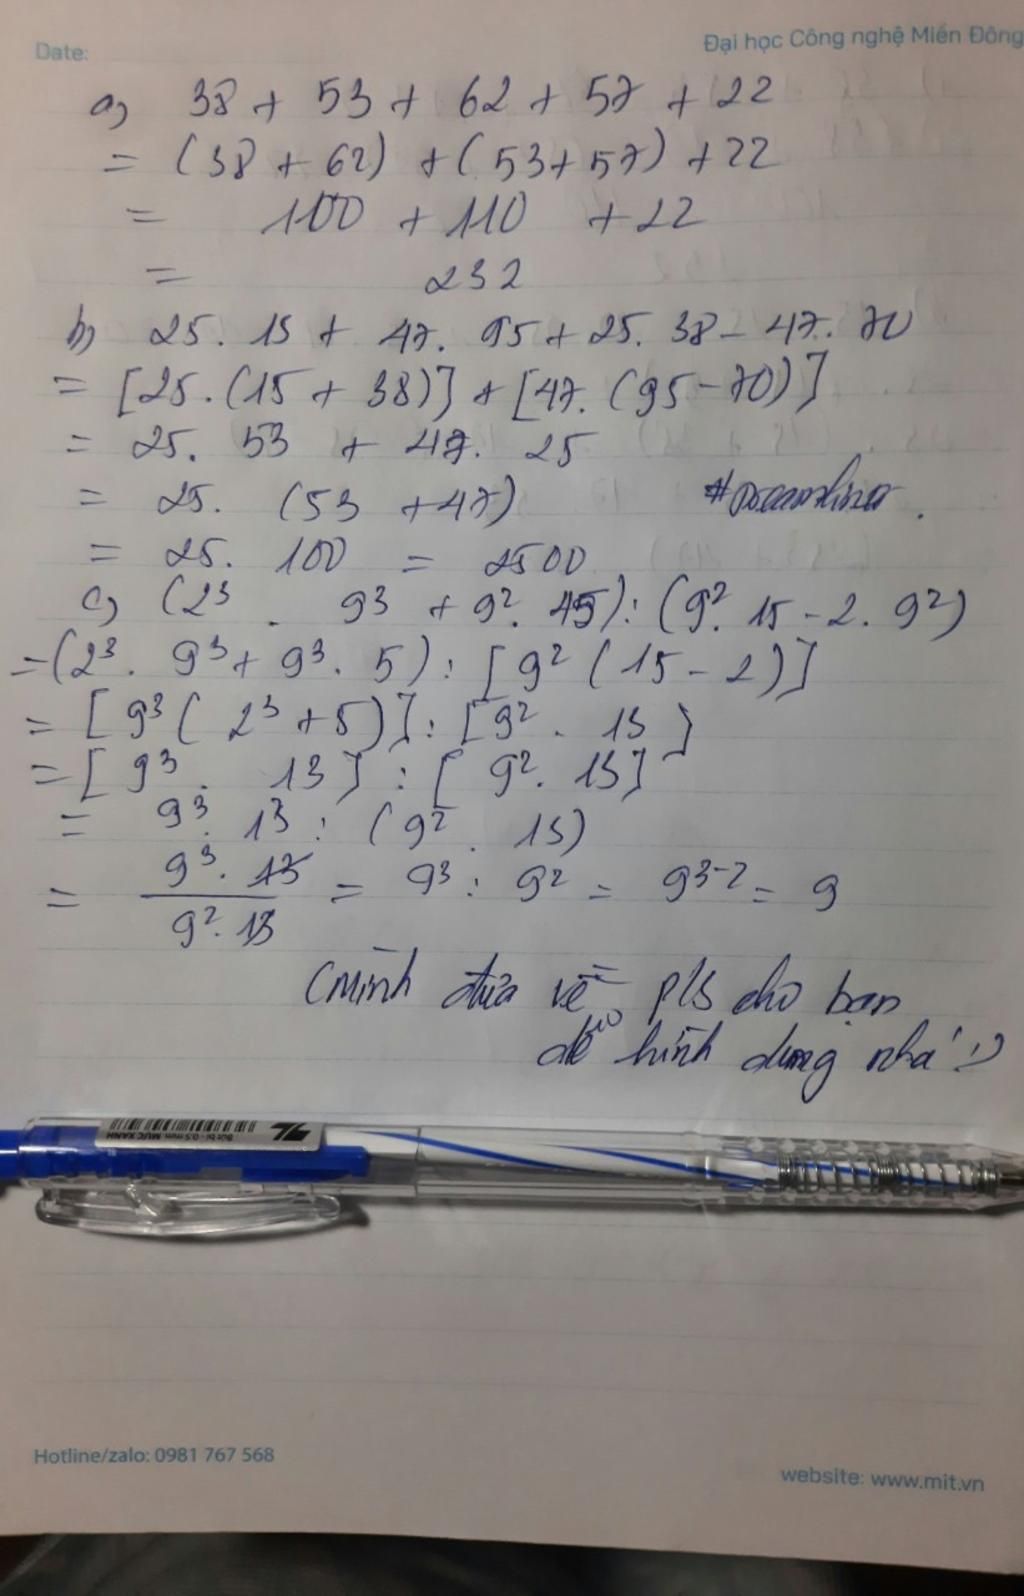 Date:
Đại học Công nghệ Miền Đông
a, 38 + 53 + 62 + 57 + 22
= (38 + 62) + (53+57) + 22
= 100 + 110 + 22
= 232
b, 25. 15 + 47. 95 + 25. 38 - 47. 70
= [25.(15 + 38)] + [47. (95-70)]
= 25. 53 + 47. 25
= 25. (53 + 47)
= 25. 100 = 2500
c, (2³ . 9³ + 9². 45): (9². 15 - 2. 9²)
=(2³. 9³ + 9³. 5) : [9² (15 - 2)]
= [9³ ( 2³ + 5)]: [9² . 13]
= [9³. 13] : [9². 13]
= 9³. 13 : (9² . 13)
= 9³. 13 / 9². 13 = 9³ : 9² = 9³⁻² = 9
(Mình đưa về p/s cho bạn
dễ hình dung nha :)
JL
Bút bi - 0.5 mm MỰC XANH
Hotline/zalo: 0981 767 568
website: www.mit.vn